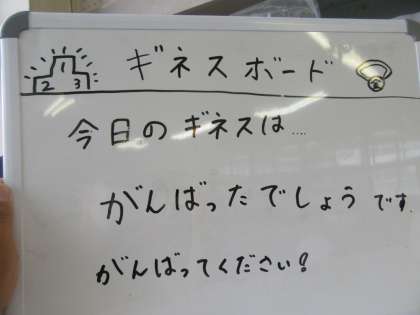 1
2 3
ギネスボード
金
今日のギネスは....
がんばったでしょうです.
がんばってください!